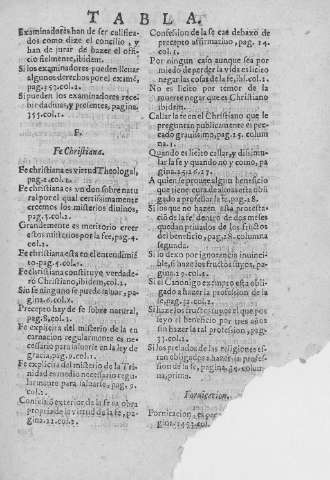 TABLA.
Examinadores han de ser califica-
dos como dize el concilio, y
han de jurar de hazer el ofi-
cio fielmente, ibidem.
Si los examinadores pueden llevar
algunos derechos por el examẽ,
pag. 353. col. 2.
Si pueden los examinadores rece-
bir dadivas, y presentes, pagina,
355. col. 1.
F.
Fe Christiana.
Fe christiana es virtud Theologal,
pag. 2. col. 1.
Fe christiana es un don sobre natu
ral por el qual certissimamente
creemos los misterios divinos,
pag. 3. col. 1.
Grandemente es meritorio creer
estos misterios por la fee, pag. 4.
col. 1.
Fe christiana esta en el entendimiẽ
to. pag. 4. col. 1.
Fe christiana constituye verdade-
ro Christiano, ibidem, col. 2.
Sin fe ninguno se puede salvar, pa
gina. 6. col. 1.
Precepto hay de fe sobre natural,
pag. 8. col. 1.
Fe explicita del misterio de la en
carnacion regularmente es ne-
cessario para salvarse en la ley de
gracia, pag. 9. col. 1.
Fe explicita del misterio de la Tri
nidad es medio necessario regu-
larmente para salvarse, pag. 9.
col. 1.
Confession exterior de la fe es obra
propria de la virtud de la fe, pa-
gina. 12. col. 2.
Confession de la fe cae debaxo de
precepto affirmativo, pag. 14.
col. 1.
Por ningun caso aunque sea por
miedo de perder la vida es licito
negar las cosas de la fe, ibi. col. 1.
No es licito por temor de la
muerte negar que es Christiano
ibidem.
Callar la fe en el Christiano que le
preguntan publicamente es pec-
cado gravissimo, pag. 15. coluna
1.
Quando es licito callar, y dissimu-
lar la fe y quando no y como, pa
gina. 15. 16. 17.
A quien se provee algun beneficio
que tiene cura de almas esta obli
gado a professar la fe, pag. 28.
Si los que no hazen esta protesta-
cion de la fe dentro de dos meses
quedan privados de los fructos
del beneficio, pag. 28. columna
segunda.
Si lo dexo por ignorancia invinci
ble, si haze los fructos suyos, pa
gina
Si el Canonigo expuso esta obli-
gado a hazer la profession de la
fe, pag. 32. col. 2.
Si haze los fructos suyos el que po
seyo el beneficio por tres años
sin hazer la tal profession, pag.
33. col. 1.
Si los prelados de las religiones es-
tan obligados a hazer la profes-
sion de fe, pagina, 34. colum-
na, prima.
Fornicacion.
Fornicacion, es pec
gina. 1453. col.